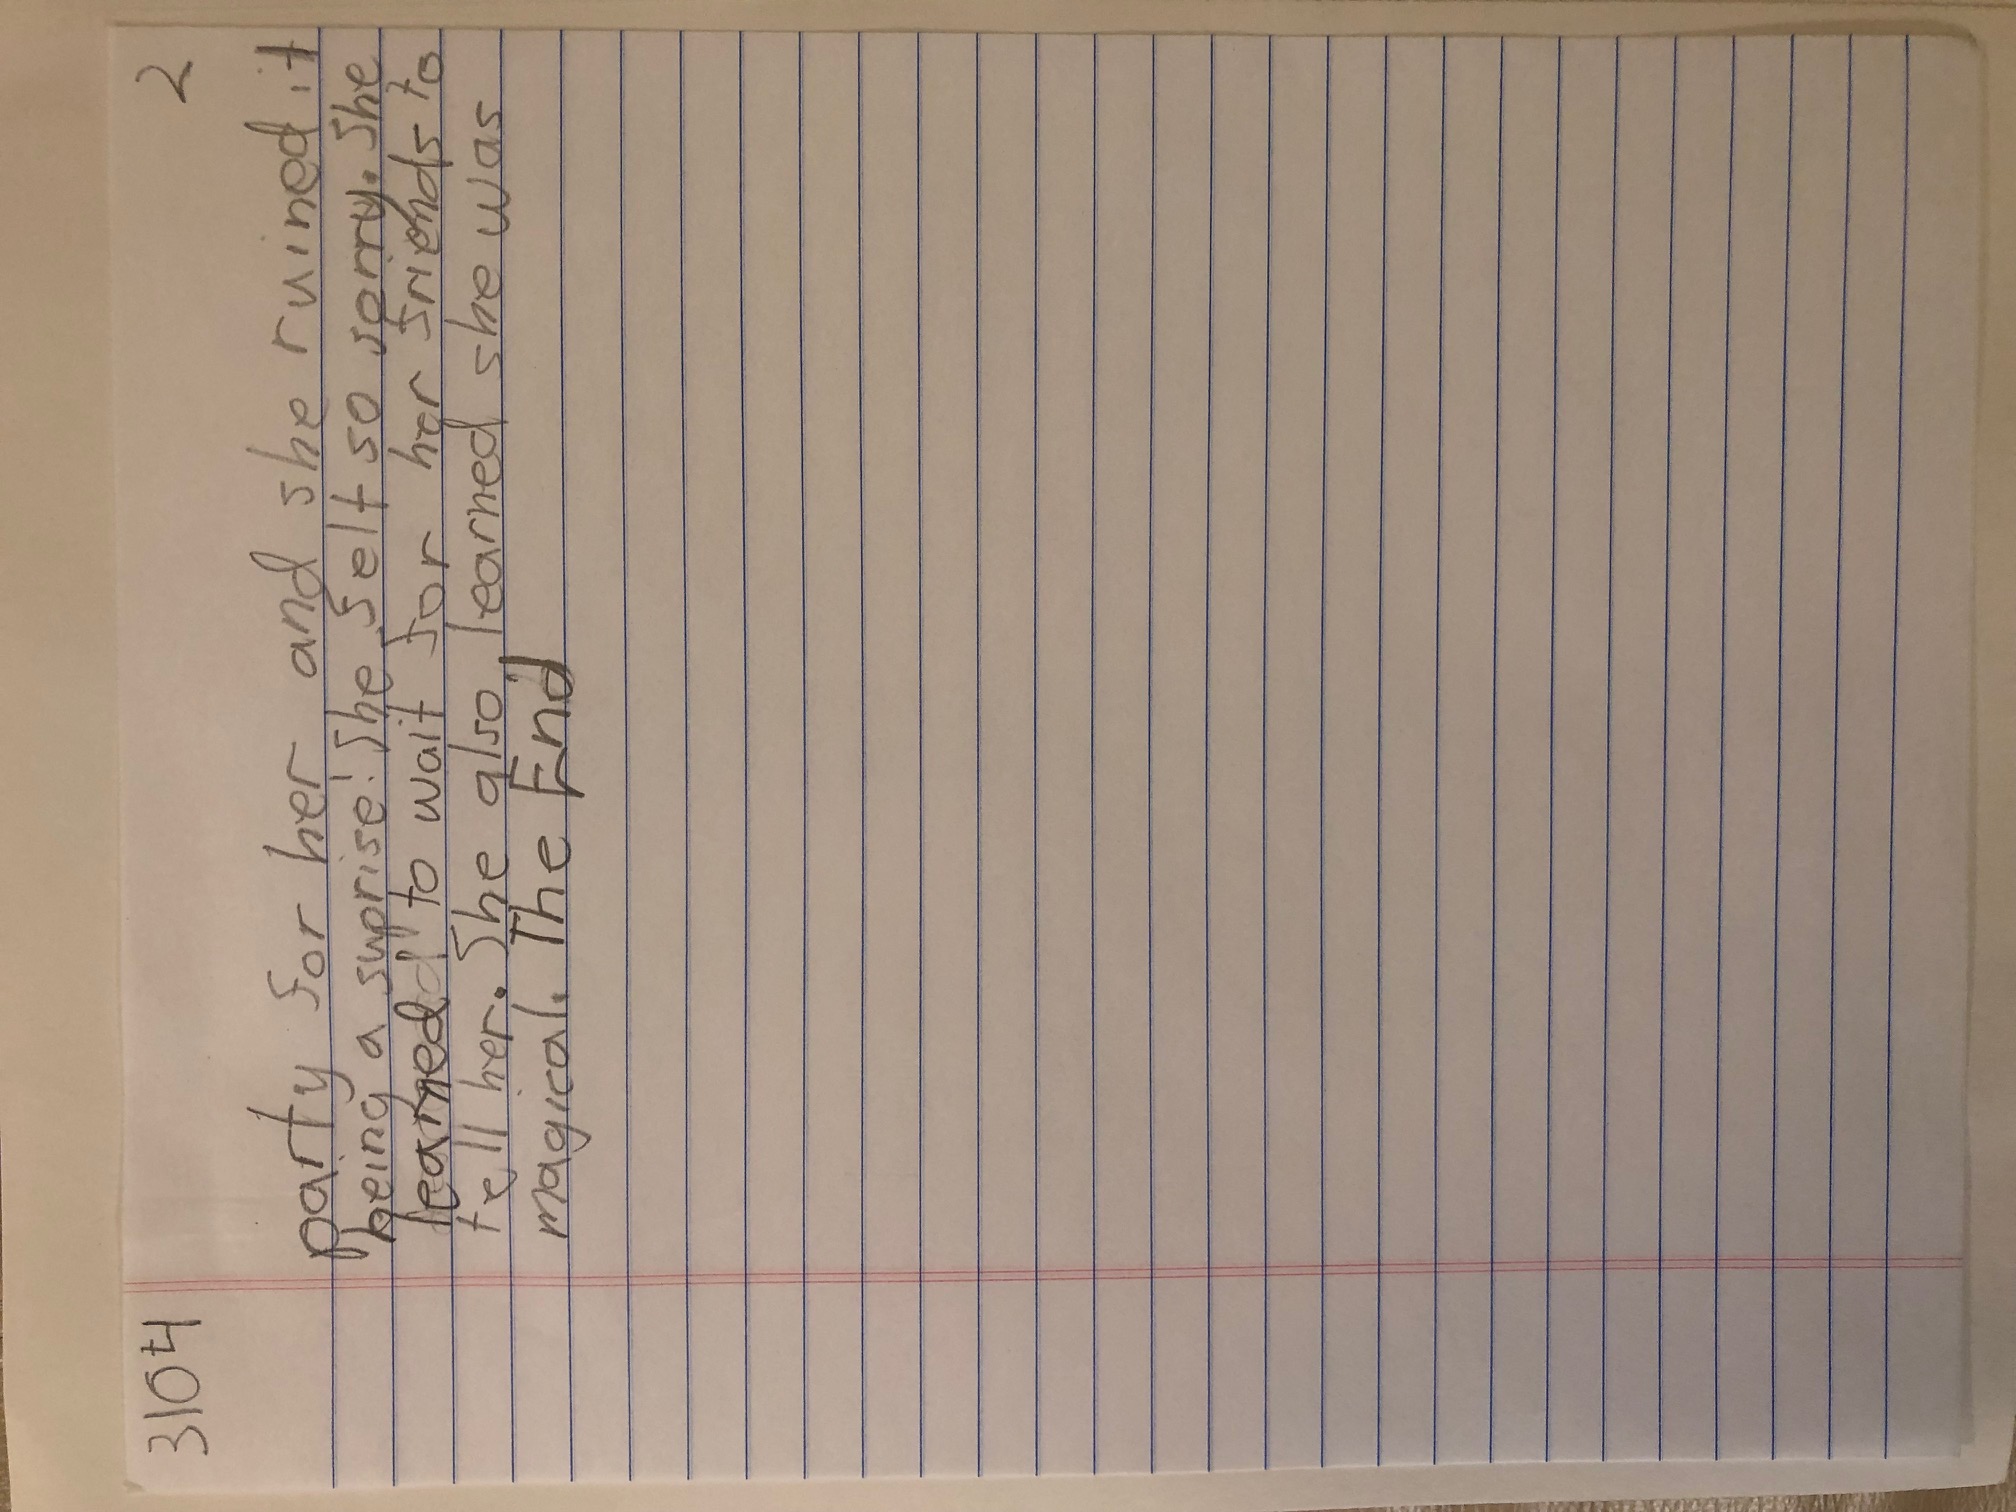 3104 2
party for her and she ruined it
being a suprise! She felt so sorry. She
learned to wait for her friends to
tell her. She also learned she was
magical. The End